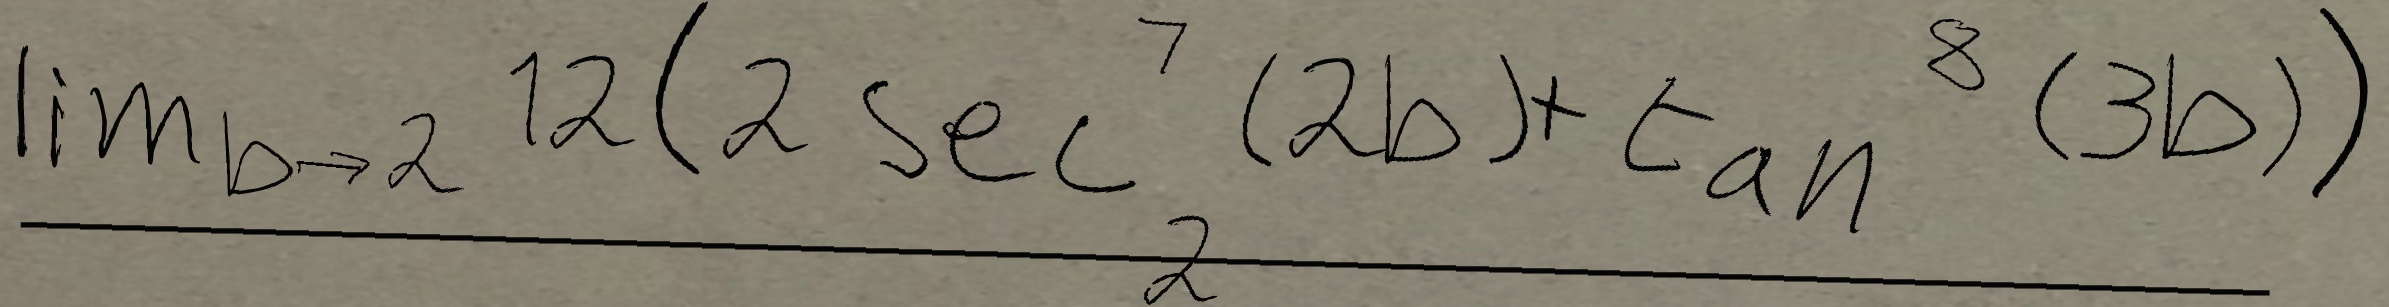 lim b→2 12(2 sec^7 (2b) + tan^8 (3b))
2